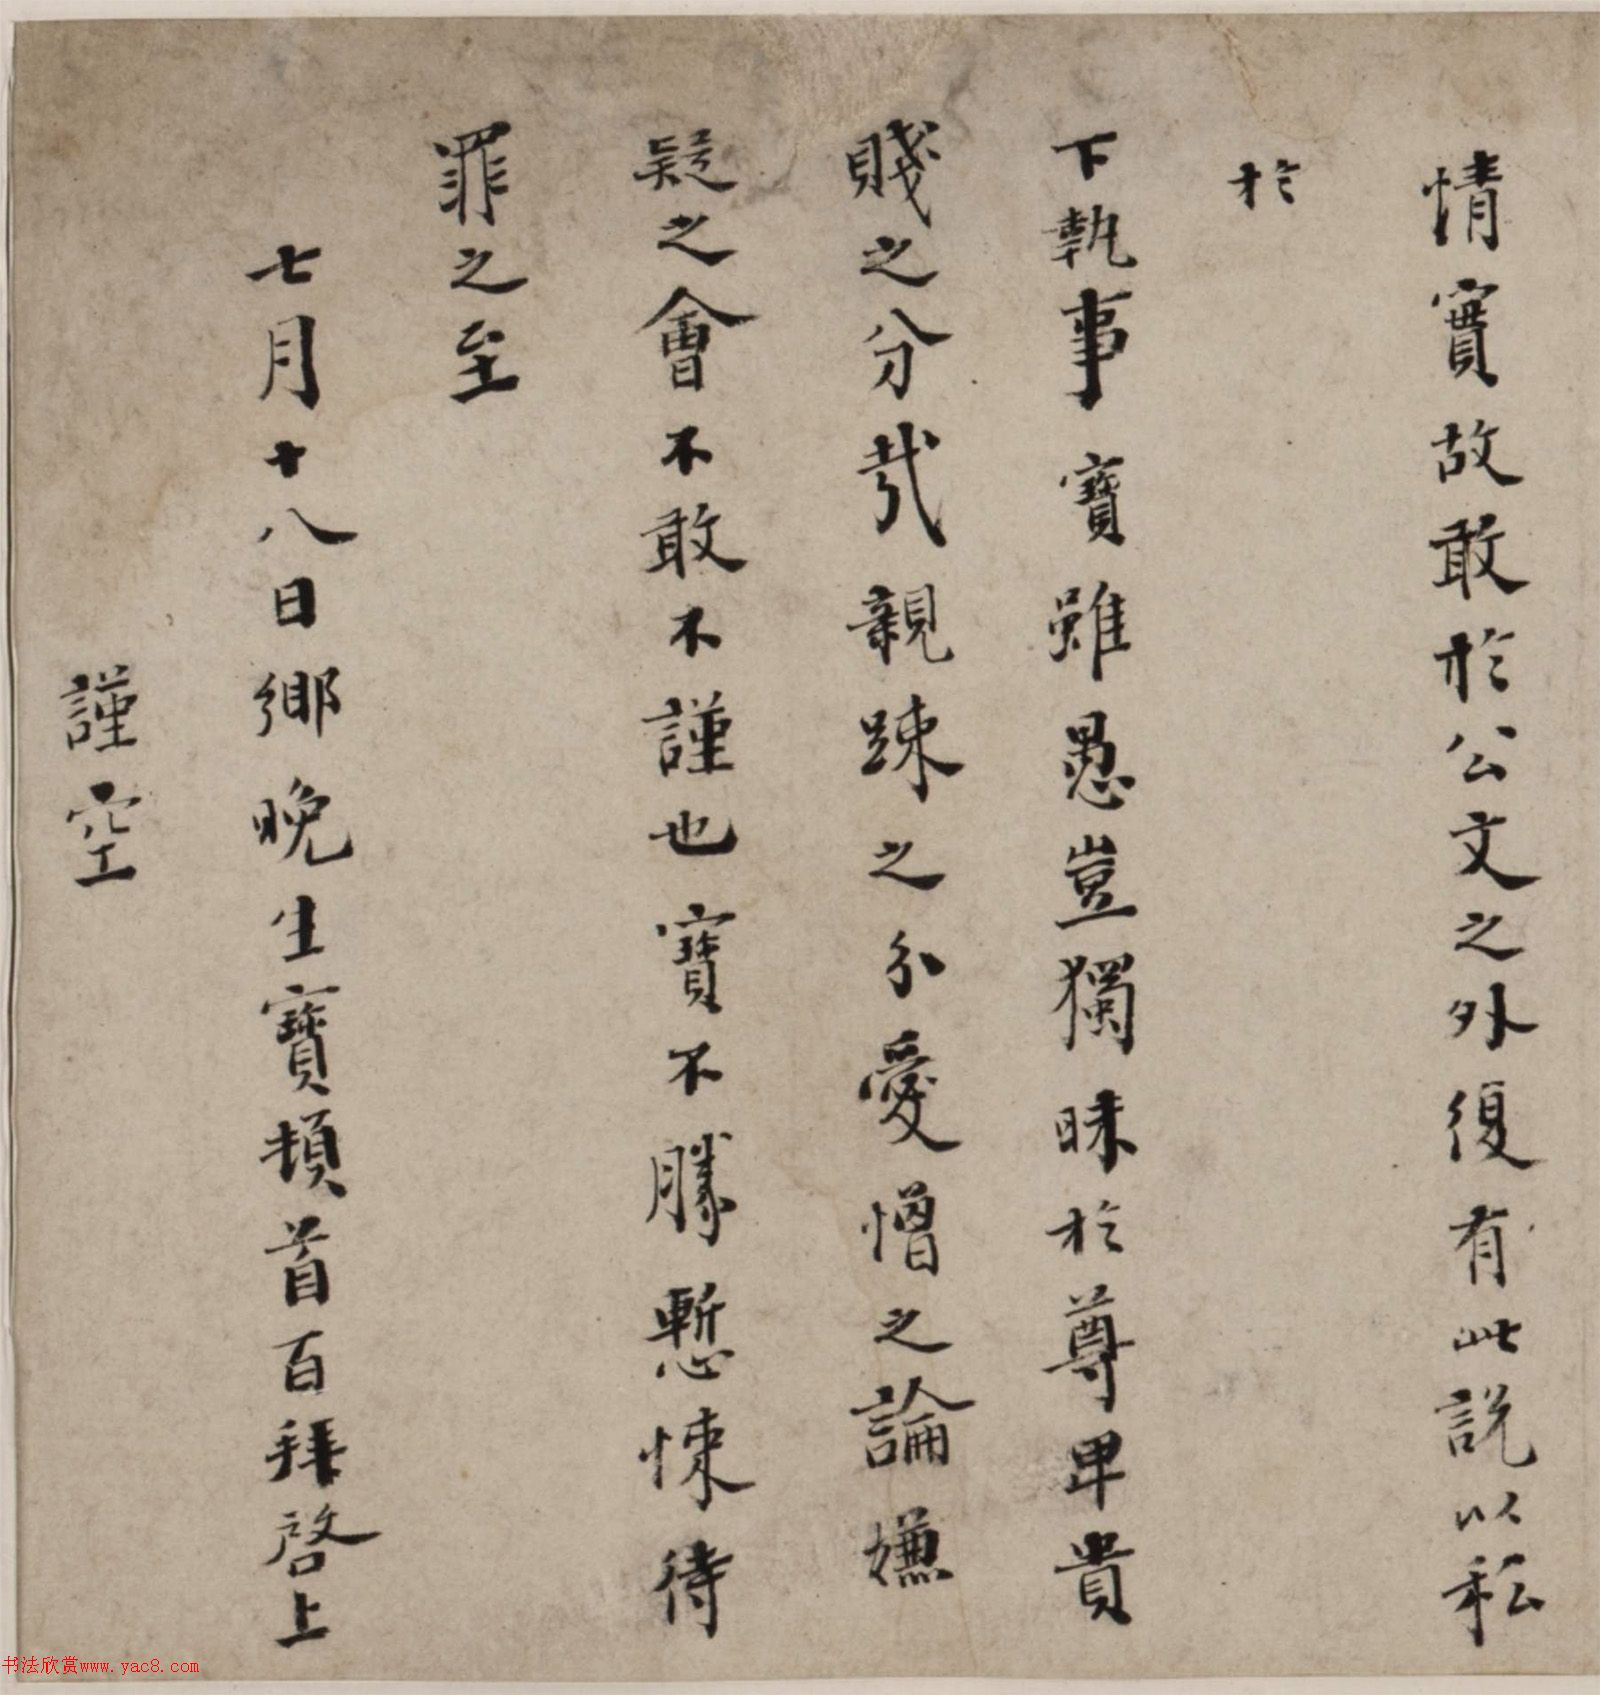 情實故敢於公文之外復有此說以私
於
下執事寶雖愚豈獨昧於尊卑貴
賤之分哉親踈之分愛憎之論嫌
疑之會不敢不謹也寶不勝慙悚待
罪之至
七月十八日鄉晚生寶頓首百拜啓上
謹空
书法欣赏www.yac8.com